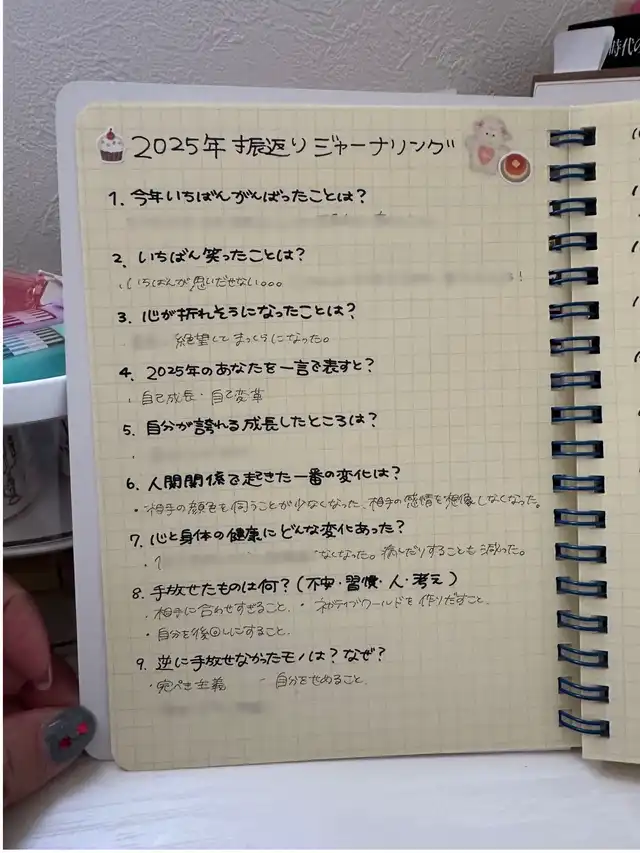 時代の
2025年 振返りジャーナリング
1. 今年いちばんがんばったことは?
2. いちばん笑ったことは?
いちばんが思いだせない。。。 !
3. 心が折れそうになったことは?
絶望してまっくらになった。
4. 2025年のあなたを一言で表すと?
自己成長・自己変革
5. 自分が誇れる成長したところは?
6. 人間関係で起きた一番の変化は?
・相手の顔色を伺うことが少なくなった、相手の感情を想像しなくなった。
7. 心と身体の健康にどんな変化あった?
・ なくなった。病んだりすることも減った。
8. 手放せたものは何?(不安・習慣・人・考え)
・相手に合わせすぎること、・ネガティブワールドを作りだすこと、
・自分を後回しにすること、
9. 逆に手放せなかったモノは?なぜ?
・完ぺき主義 ・自分をせめること、